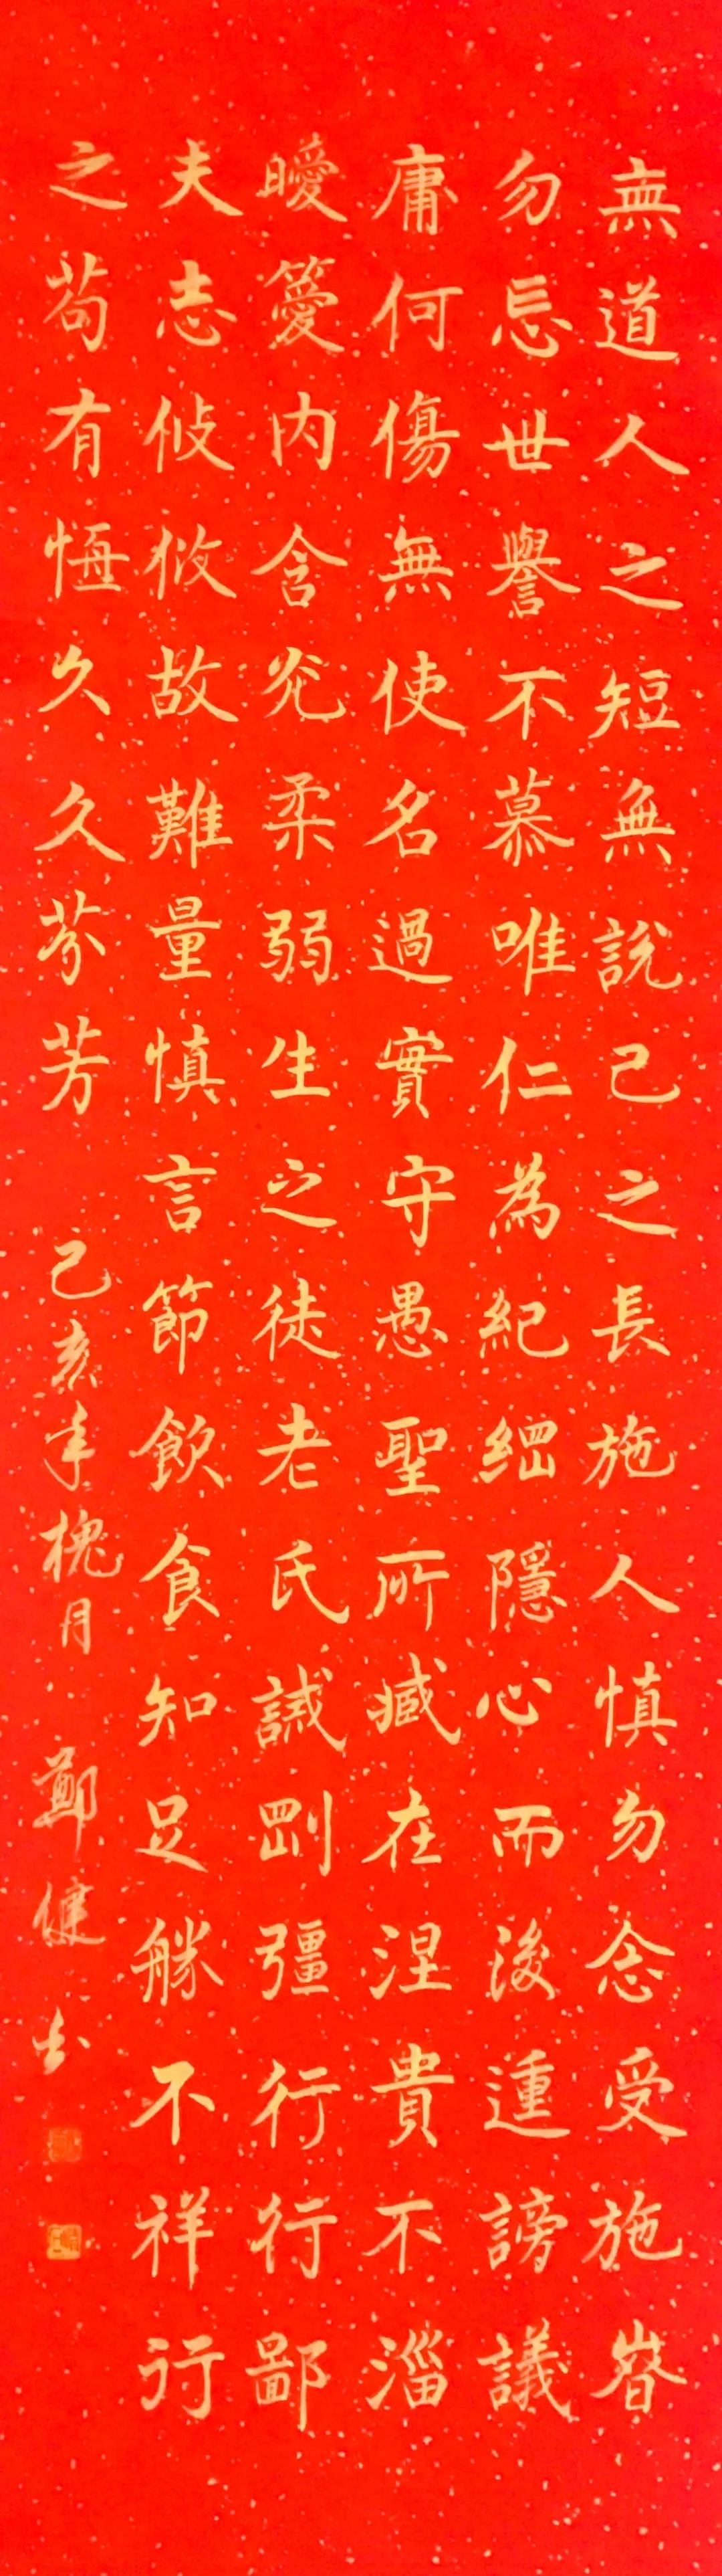 無道人之短無說己之長施人慎勿念受施眘
勿忘世譽不慕唯仁為紀綱隱心而後運謗議
庸何傷無使名過實守愚聖所臧在涅貴不淄
曖籆内含光柔弱生之徒老氏誡剛彊行行鄙
夫志攸攸故難量慎言節飲食知足勝不祥行
之苟有恆久久芬芳 己亥年槐月 鄭健书